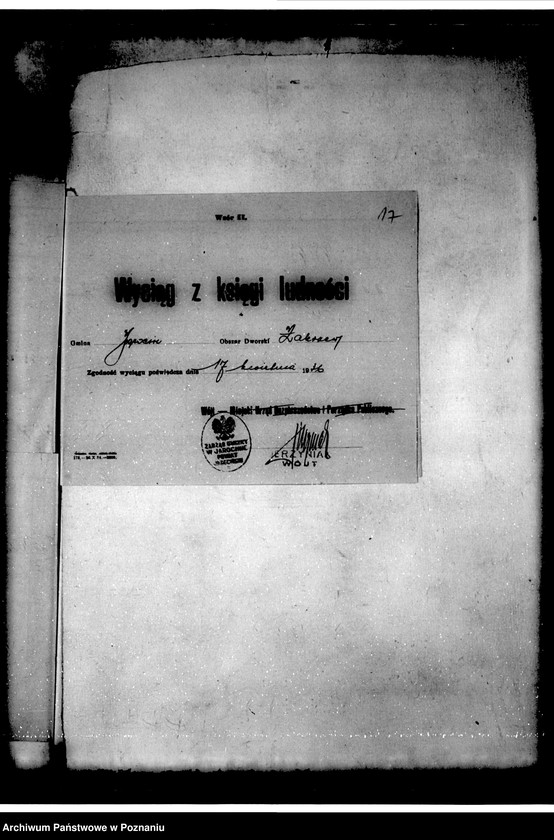 Wzór 21.
17
Wyciąg z księgi ludności
Gmina Jarocin Obszar Dworski Zakrzew
Zgodność wyciągu poświadcza dnia 17 kwietnia 1946
Wójt — Miejski Urząd Bezpieczeństwa i Porządku Publicznego.
ZARZĄD GMINY
W JAROCINIE
POWIAT
JAROCIŃSKI
WÓJT
Archiwum Państwowe w Poznaniu